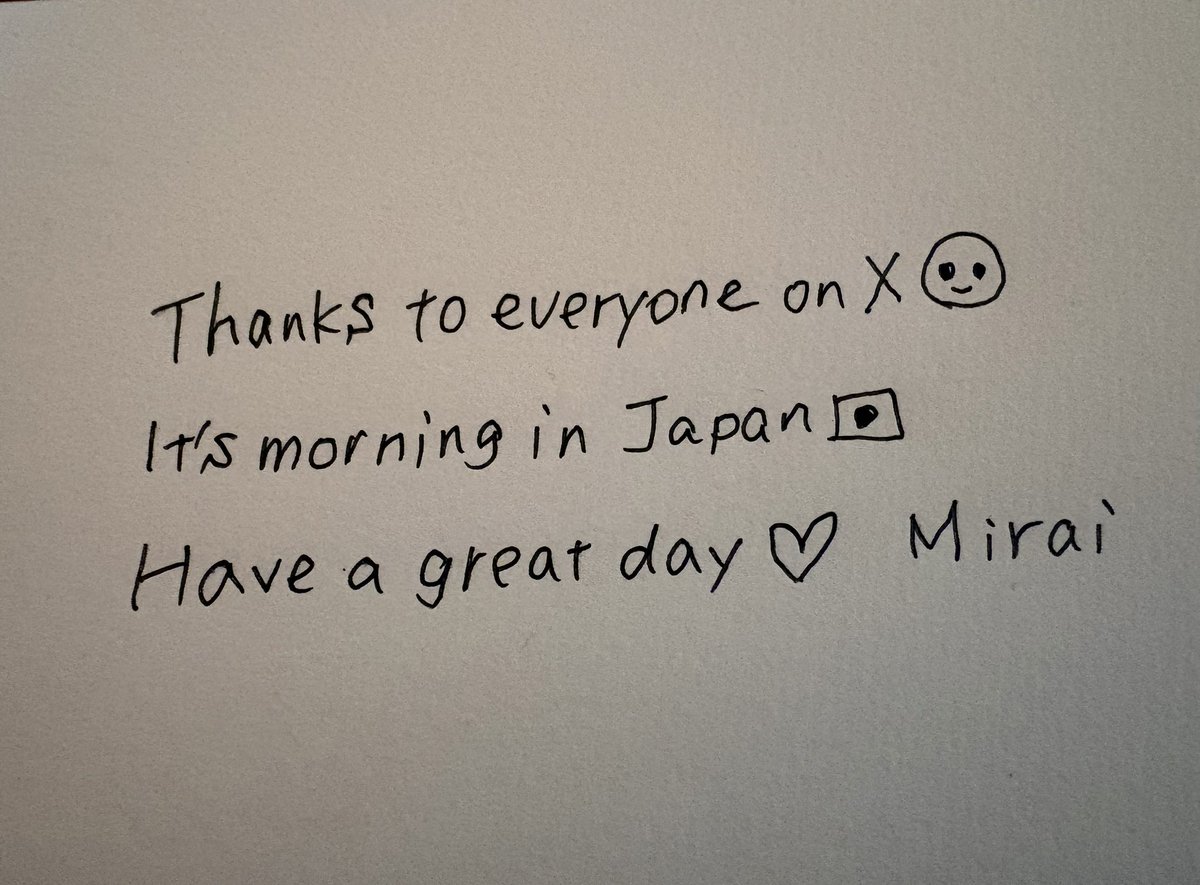 Thanks to everyone on X
It's morning in Japan
Have a great day ♡ Mirai